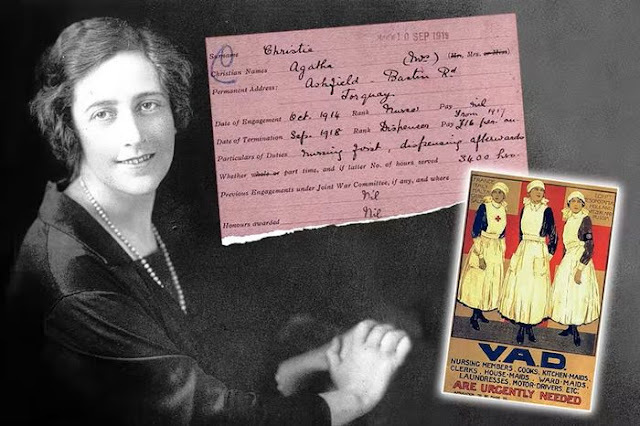 10 SEP 1919
Surname Christie
Christian Names Agatha (Mrs) (Mr., Mrs. or Miss)
Permanent Address: Ashfield Barton Rd
Torquay
Date of Engagement Oct. 1914 Rank Nurse Pay nil
From 1917
Date of Termination Sep. 1918 Rank Dispenser Pay £16 per an.
Particulars of Duties Nursing first, dispensing afterwards
Whether whole or part time, and if latter No. of hours served 3400 hrs.
Previous Engagements under Joint War Committee, if any, and where
Nil
Honours awarded Nil
VAD
NURSING MEMBERS, COOKS, KITCHEN-MAIDS,
CLERKS, HOUSE-MAIDS, WARD-MAIDS,
LAUNDRESSES, MOTOR-DRIVERS, ETC.
ARE URGENTLY NEEDED